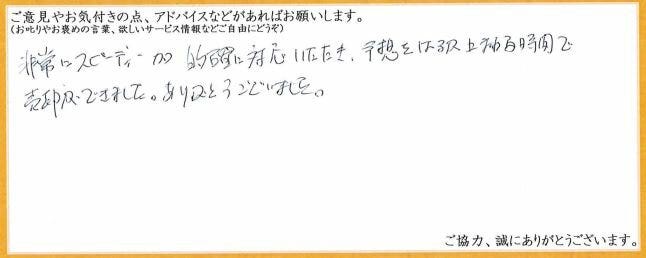 ご意見やお気付きの点、アドバイスなどがあればお願いします。
(お叱りやお褒めの言葉、欲しいサービス情報などご自由にどうぞ)
非常にスピーディーかつ的確に対応いただき、予想をはるか上回る時間で
売却ができました。ありがとうございました。
ご協力、誠にありがとうございます。